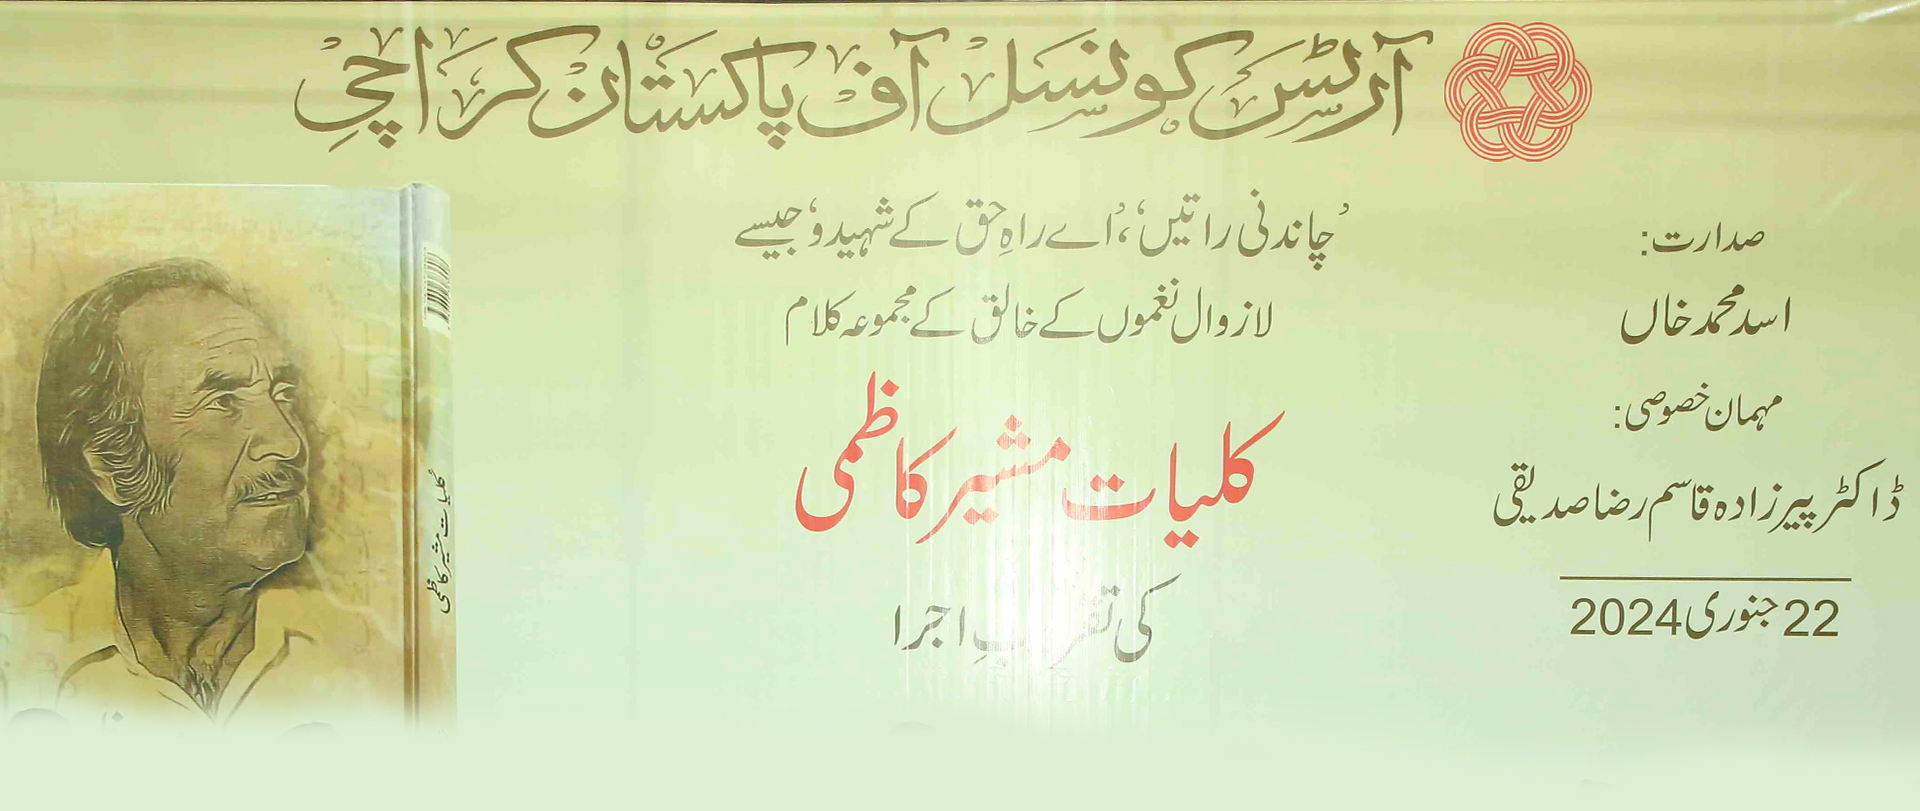 آرٹس کونسل آف پاکستان کراچی
'چاندنی راتیں'، 'اے راہِ حق کے شہیدو' جیسے
لازوال نغموں کے خالق کے مجموعہ کلام
کلیات مشیر کاظمی
کی تقریبِ اجرا
صدارت:
اسد محمد خاں
مہمان خصوصی:
ڈاکٹر پیرزادہ قاسم رضا صدیقی
22 جنوری 2024
کلیات مشیر کاظمی